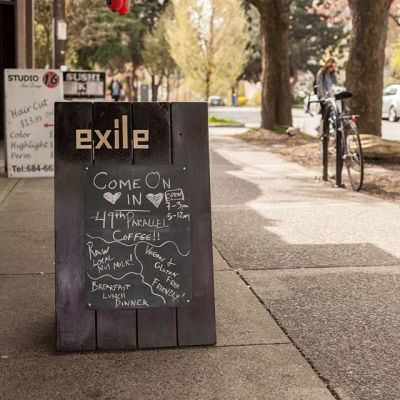 exile
COME ON
IN
OPEN
7-3pm
5-12am
49th PARALLEL
COFFEE!!
RAW
LOCAL
NUT MILK!
VEGAN +
GLUTEN
FREE
FRIENDLY
BREAKFAST
LUNCH
DINNER
STUDIO 16
Hair Cut
Color
Highlight
Perm
Tel:684-66
SUSHI K